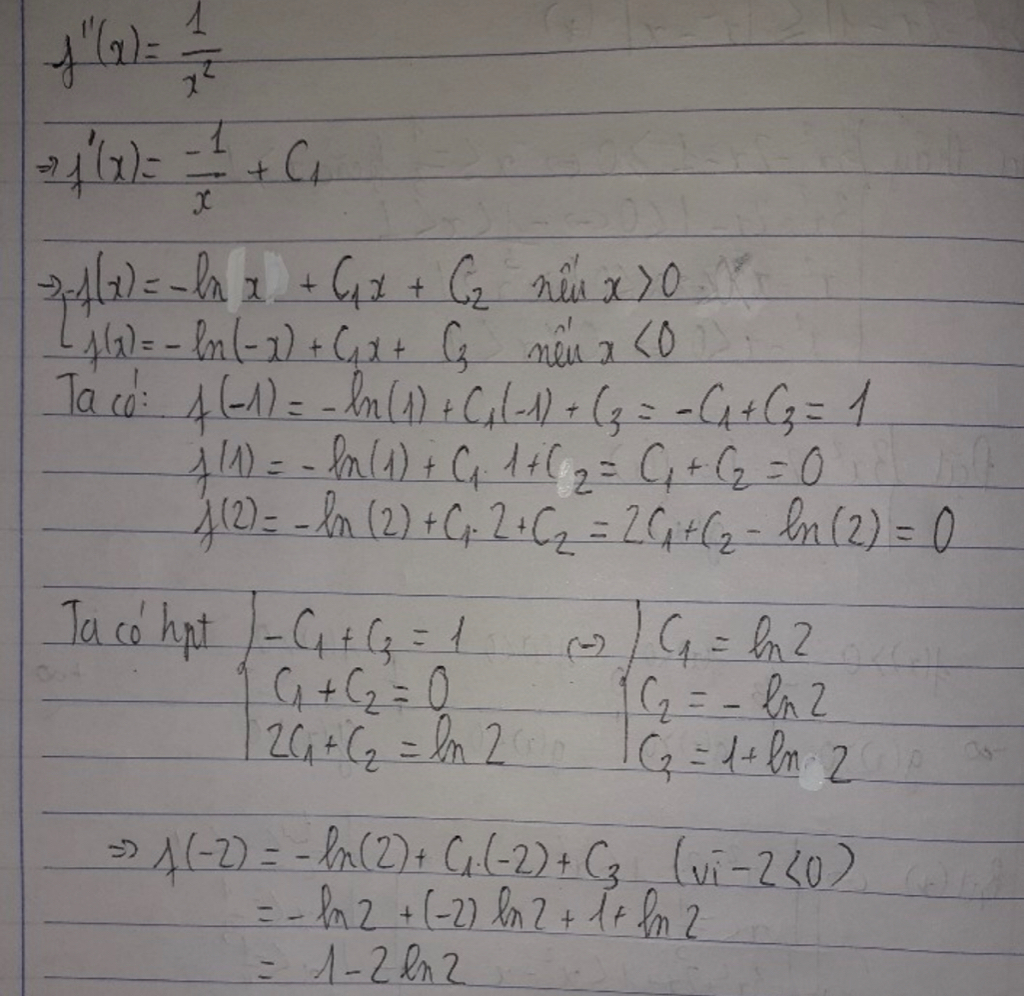 f''(x) = 1/x²
⇒ f'(x) = -1/x + C₁
⇒ f(x) = -ln(x) + C₁x + C₂ nếu x > 0
f(x) = -ln(-x) + C₁x + C₃ nếu x < 0
Ta có: f(-1) = -ln(1) + C₁(-1) + C₃ = -C₁ + C₃ = 1
f(1) = -ln(1) + C₁.1 + C₂ = C₁ + C₂ = 0
f(2) = -ln(2) + C₁.2 + C₂ = 2C₁ + C₂ - ln(2) = 0
Ta có hpt { -C₁ + C₃ = 1 (→) { C₁ = ln2
C₁ + C₂ = 0 C₂ = -ln2
2C₁ + C₂ = ln2 C₃ = 1 + ln2
⇒ f(-2) = -ln(2) + C₁.(-2) + C₃ (vì -2<0)
= -ln2 + (-2)ln2 + 1 + ln2
= 1 - 2ln2